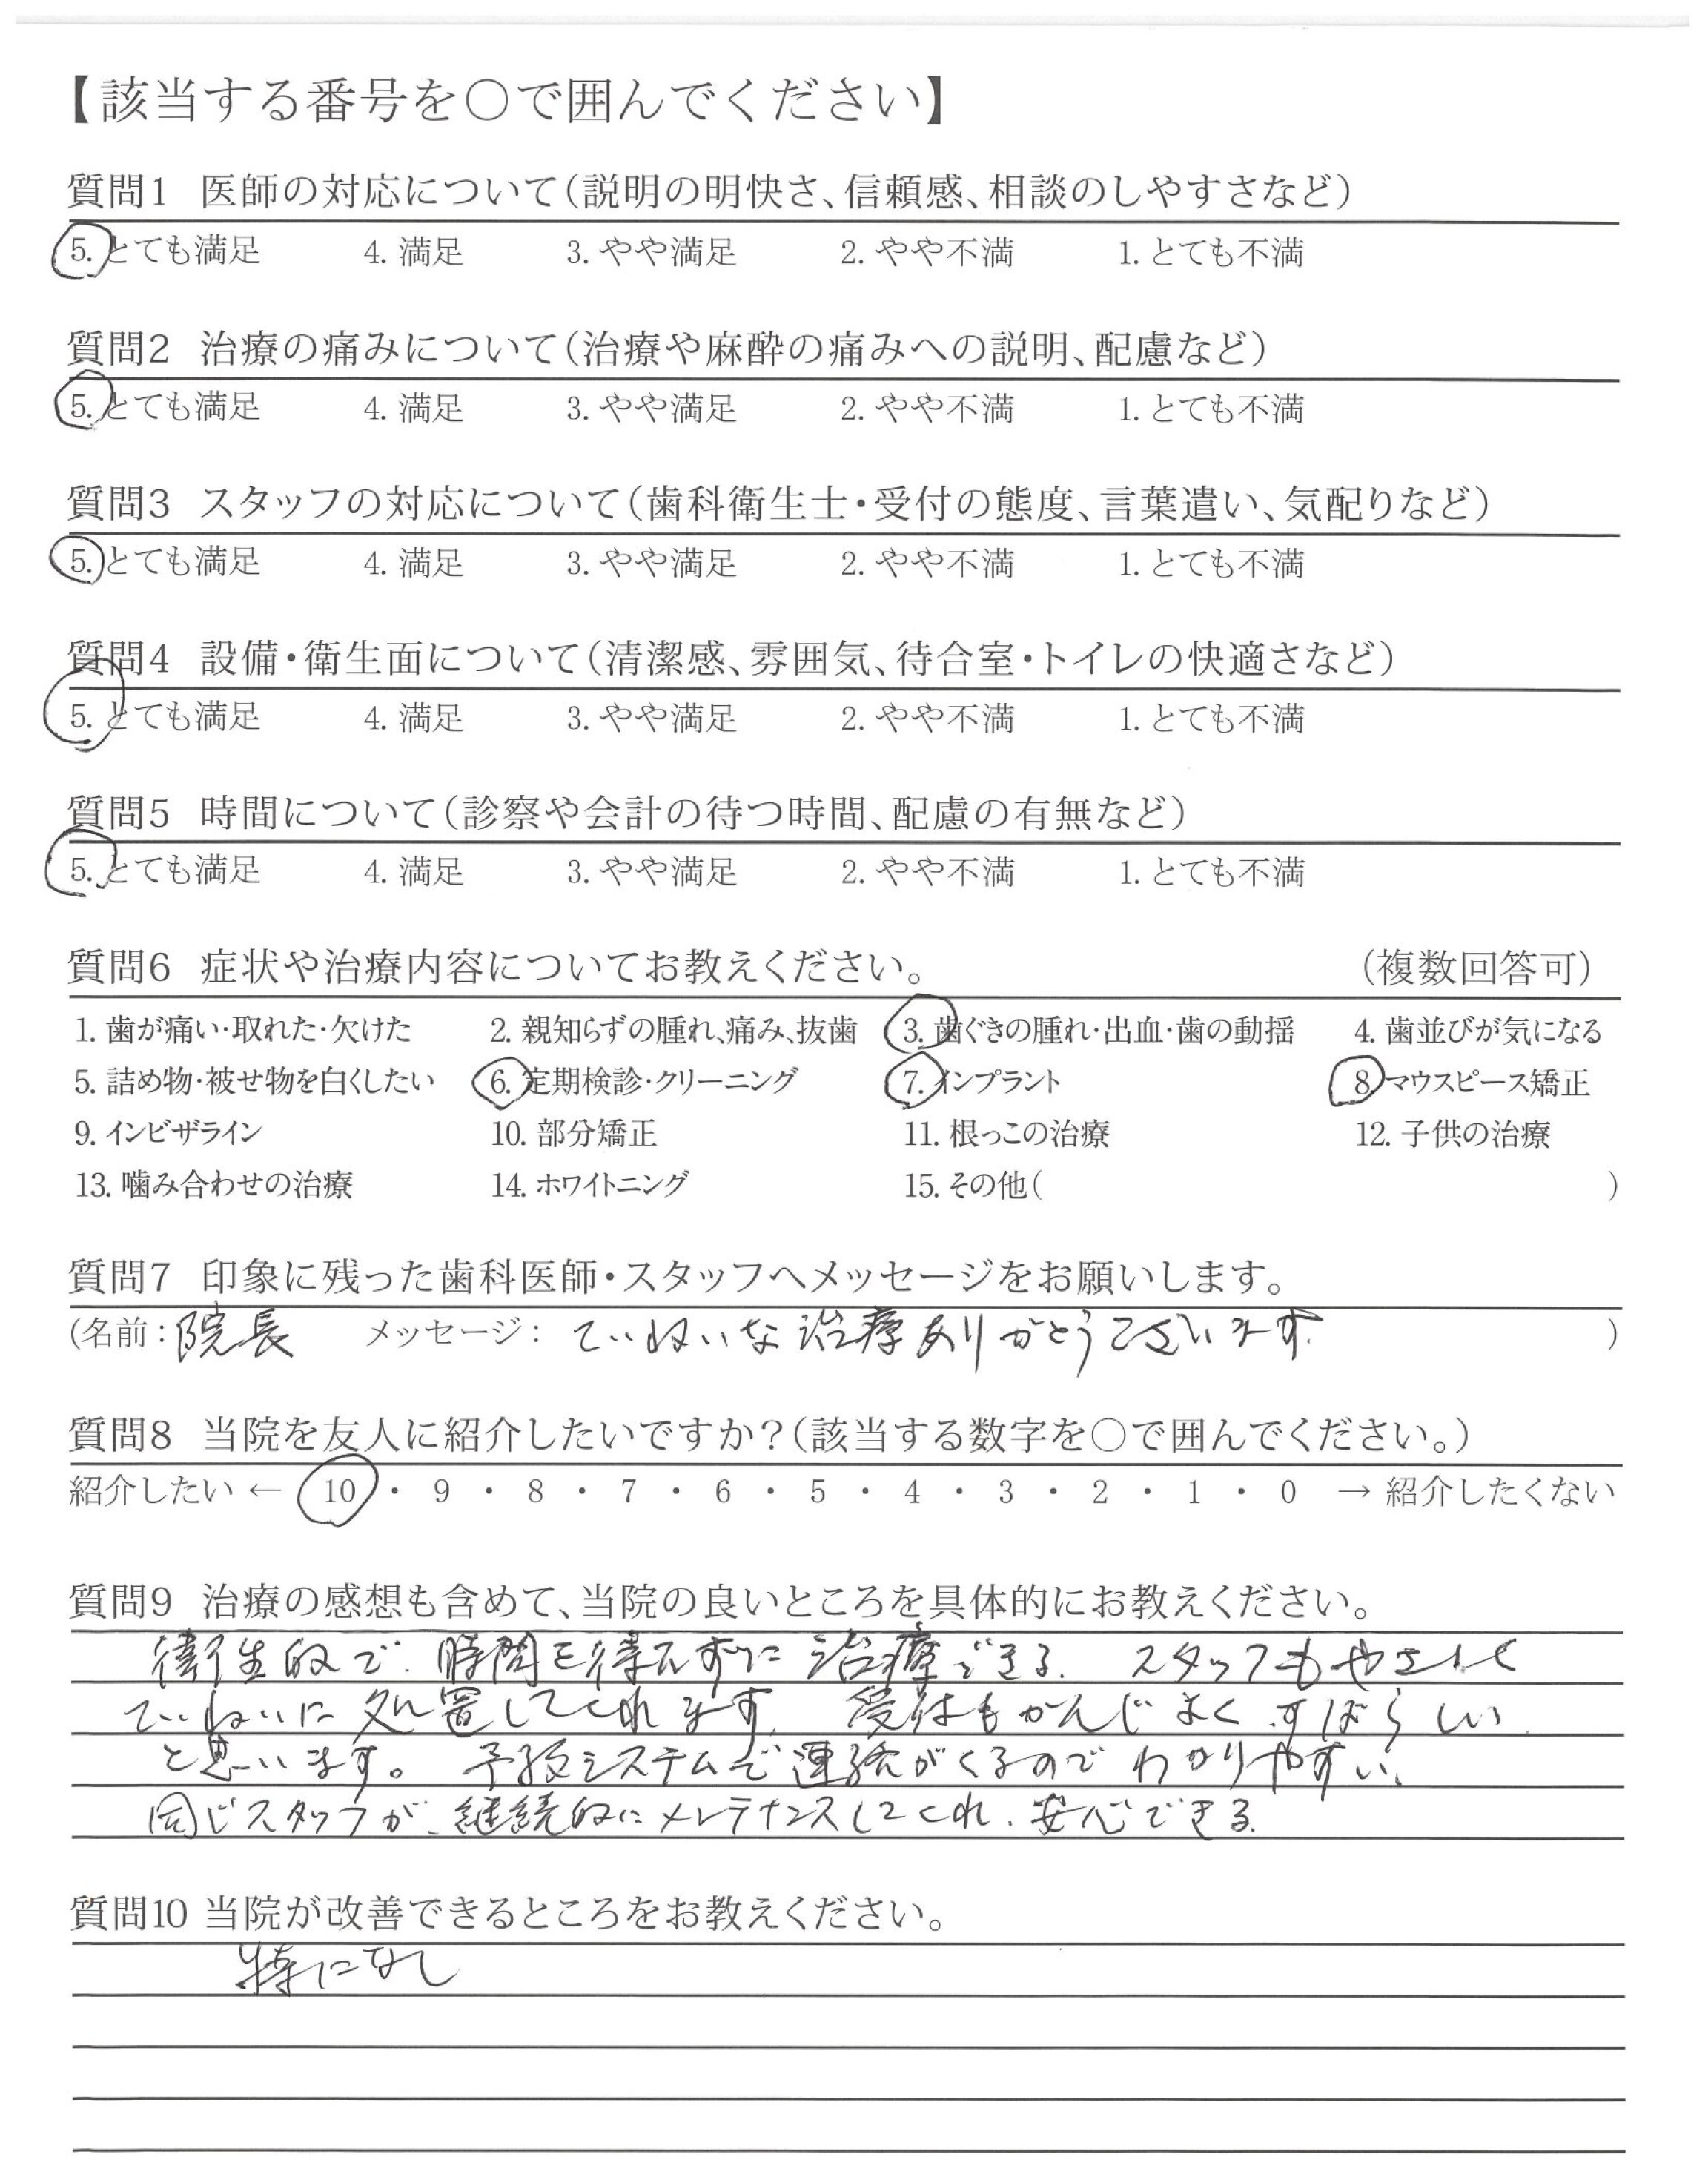 【該当する番号を○で囲んでください】
質問1 医師の対応について(説明の明快さ、信頼感、相談のしやすさなど)
5. とても満足 4. 満足 3. やや満足 2. やや不満 1. とても不満
質問2 治療の痛みについて(治療や麻酔の痛みへの説明、配慮など)
5. とても満足 4. 満足 3. やや満足 2. やや不満 1. とても不満
質問3 スタッフの対応について(歯科衛生士・受付の態度、言葉遣い、気配りなど)
5. とても満足 4. 満足 3. やや満足 2. やや不満 1. とても不満
質問4 設備・衛生面について(清潔感、雰囲気、待合室・トイレの快適さなど)
5. とても満足 4. 満足 3. やや満足 2. やや不満 1. とても不満
質問5 時間について(診察や会計の待つ時間、配慮の有無など)
5. とても満足 4. 満足 3. やや満足 2. やや不満 1. とても不満
質問6 症状や治療内容についてお教えください。 (複数回答可)
1. 歯が痛い・取れた・欠けた 2. 親知らずの腫れ、痛み、抜歯 3. 歯ぐきの腫れ・出血・歯の動揺 4. 歯並びが気になる
5. 詰め物・被せ物を白くしたい 6. 定期検診・クリーニング 7. インプラント 8. マウスピース矯正
9. インビザライン 10. 部分矯正 11. 根っこの治療 12. 子供の治療
13. 噛み合わせの治療 14. ホワイトニング 15. その他( )
質問7 印象に残った歯科医師・スタッフへメッセージをお願いします。
(名前: 院長 メッセージ: ていねいな治療ありがとうございます )
質問8 当院を友人に紹介したいですか?(該当する数字を○で囲んでください。)
紹介したい ← 10 ・ 9 ・ 8 ・ 7 ・ 6 ・ 5 ・ 4 ・ 3 ・ 2 ・ 1 ・ 0 → 紹介したくない
質問9 治療の感想も含めて、当院の良いところを具体的にお教えください。
衛生的で、時間を待たずに治療できる。 スタッフもやさしく
ていねいに処置してくれます。 受付もかんじよく、すばらしい
と思います。 予約システムで連絡がくるのでわかりやすい。
同じスタッフが、継続的にメンテナンスしてくれ、安心できる。
質問10 当院が改善できるところをお教えください。
特になし